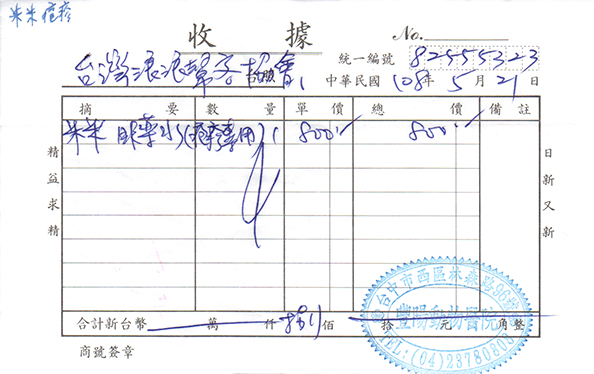 朱朱疱疹
收據 No.
台灣浪浪幫客協會 統一編號 82555323
中華民國 108年 5月 21日
摘要 數量 單價 總價 備註
朱朱 眼藥水(疱疹專用) 1 800 800
精益求精
日新又新
合計新台幣 萬 仟 捌 佰 拾 元 角整
商號簽章
台中市西區林森路96號
豐陽動物醫院
TEL:(04)23780803